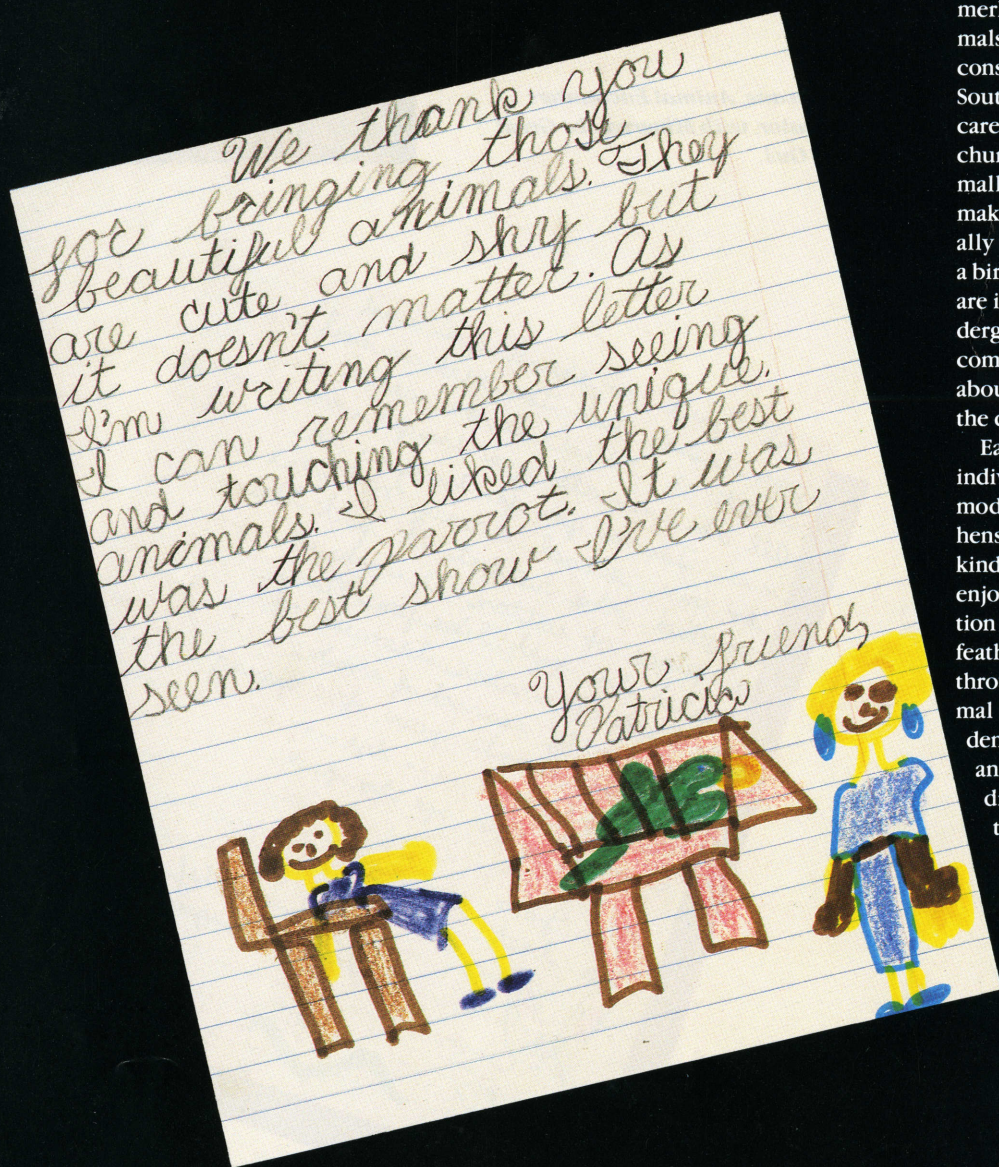 We thank you
for bringing those
beautiful animals. They
are cute and shy but
it doesn't matter. As
I'm writing this letter
I can remember seeing
and touching the unique.
animals. I liked the best
was the parrot. It was
the best show I've ever
seen.
Your friend,
Patricia
mer
mals
cons
Sout
care
chur
mall
mak
ally
a bir
are i
derg
com
abou
the
Ea
indiv
mod
hens
kind
enjo
tion
feath
thro
mal
den
an
d
t